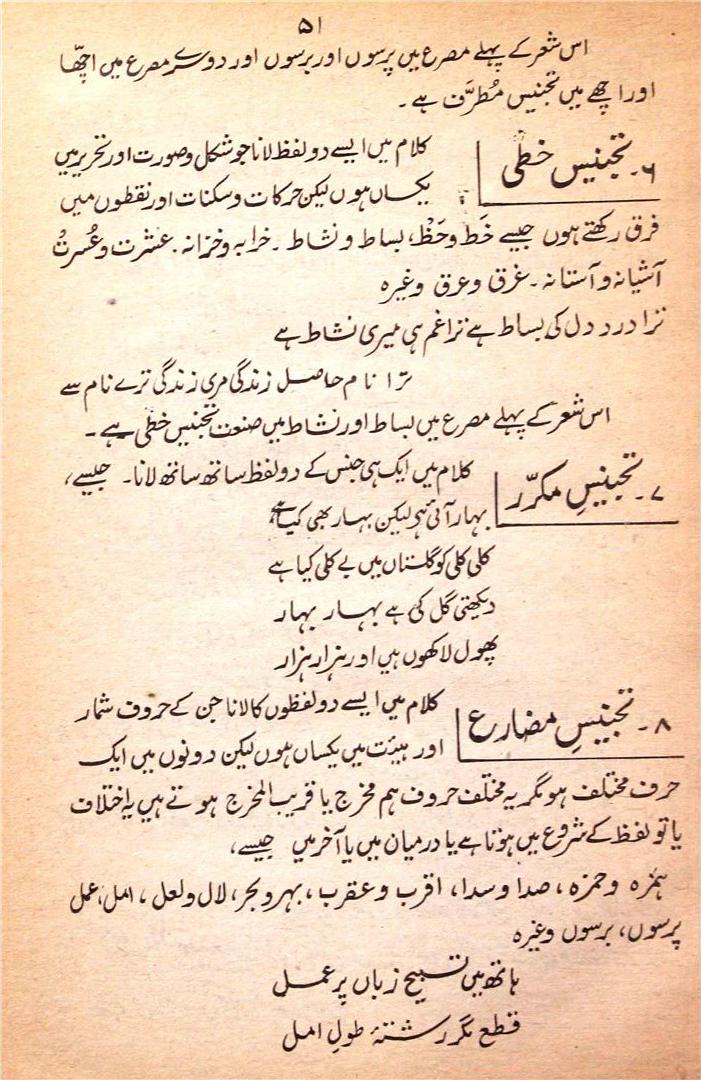 ۵۱
اس شعر کے پہلے مصرع میں پرسوں اور برسوں اور دوسرے مصرع میں اچھّا
اور اچھے میں تجنیس مُطرَّف ہے۔
۶۔ تجنیس خطی
کلام میں ایسے دو لفظ لانا جو شکل و صورت اور تحریر میں
یکساں ہوں لیکن حرکات و سکنات اور نقطوں میں
فرق رکھتے ہوں جیسے خَط و حَظ، بساط و نشاط ۔ خرابہ و خزانہ ۔ عشرت و عُسرتُ
آشیانہ و آستانہ ۔ غرق و عرق وغیرہ
ترا درد دل کی بساط ہے ترا غم ہی میری نشاط ہے
ترا نام حاصل زندگی مری زندگی ترے نام سے
اس شعر کے پہلے مصرع میں بساط اور نشاط میں صنعت تجنیس خطی ہے ۔
۷۔ تجنیسِ مکرّر
کلام میں ایک ہی جنس کے دو لفظ ساتھ ساتھ لانا۔ جیسے،
بہار آئی ہو لیکن بہار بھی کیا ہے
کلی کلی کو گلستاں میں بے کلی کیا ہے
دیکھتی گل کی ہے بہار بہار
پھول لاکھوں ہیں اور ہزار ہزار
۸۔ تجنیسِ مضارع
کلام میں ایسے دو لفظوں کا لانا جن کے حروف شمار
اور ہیئت میں یکساں ہوں لیکن دونوں میں ایک
حرف مختلف ہو مگر یہ مختلف حروف ہم مخرج یا قریب المخرج ہوتے ہیں یہ اختلاف
یا تو لفظ کے شروع میں ہوتا ہے یا درمیان میں یا آخر میں جیسے،
ہمزہ و حمزہ، صدا و سدا، اقرب و عقرب، بہر و بحر، لال و لعل، امل، عمل
پرسوں، برسوں وغیرہ
ہاتھ میں تسبیح زباں پر عمل
قطع مگر رشتۂ طولِ امل